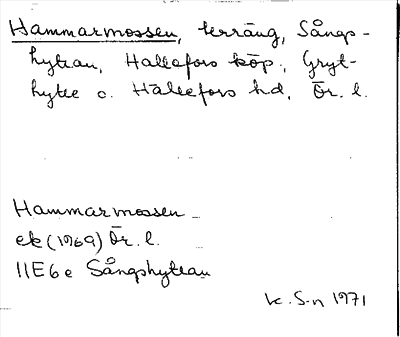 Hammarmossen, terräng, Sångs-
hyttan, Hällefors köp., Gryt-
hytte o. Hällefors hd, Ör. l.
Hammarmossen
ek (1969) Ör. l.
11E6e Sångshyttan
K. S-n 1971